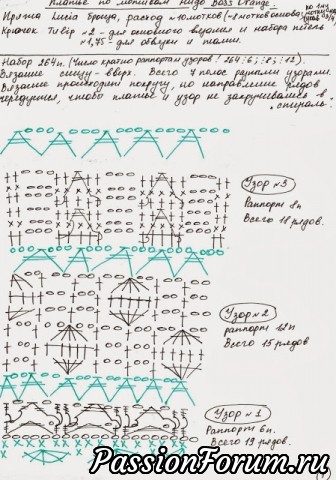 Платье по мотивам Хидо Boss Orange.
Пряжа Lucia Броща, расход ≈ 10 мотков
Крючок Тивёр №2 - для основного вязания и набора петель
№1,75 - для обвязки и талии.
Набор 264п. (Число кратно раппортам узоров! 264:6; :8; :12).
Вязание снизу-вверх. Всего 7 полос разными узорами.
Вязание происходит по кругу, но направление рядов
чередуется, чтобы платье и узор не закручивались в
спираль.
Узор №3
Раппорт 8п
Всего 18 рядов.
Узор №2
раппорт 12п
Всего 15 рядов
Узор №1
Раппорт 6п.
Всего 19 рядов.
PassionForum.ru